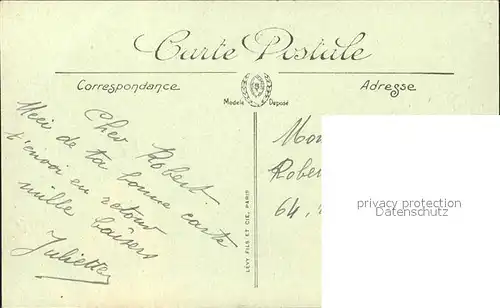 Carte Postale
Correspondance
Adresse
Modèle Déposé
Cher Robert.
Meci de ta bonne carte
t'envoi en retour
mille baisers
Juliette
LÉVY FILS ET CIE, PARIS
Mon
Rober
64,
privacy protection
Datenschutz